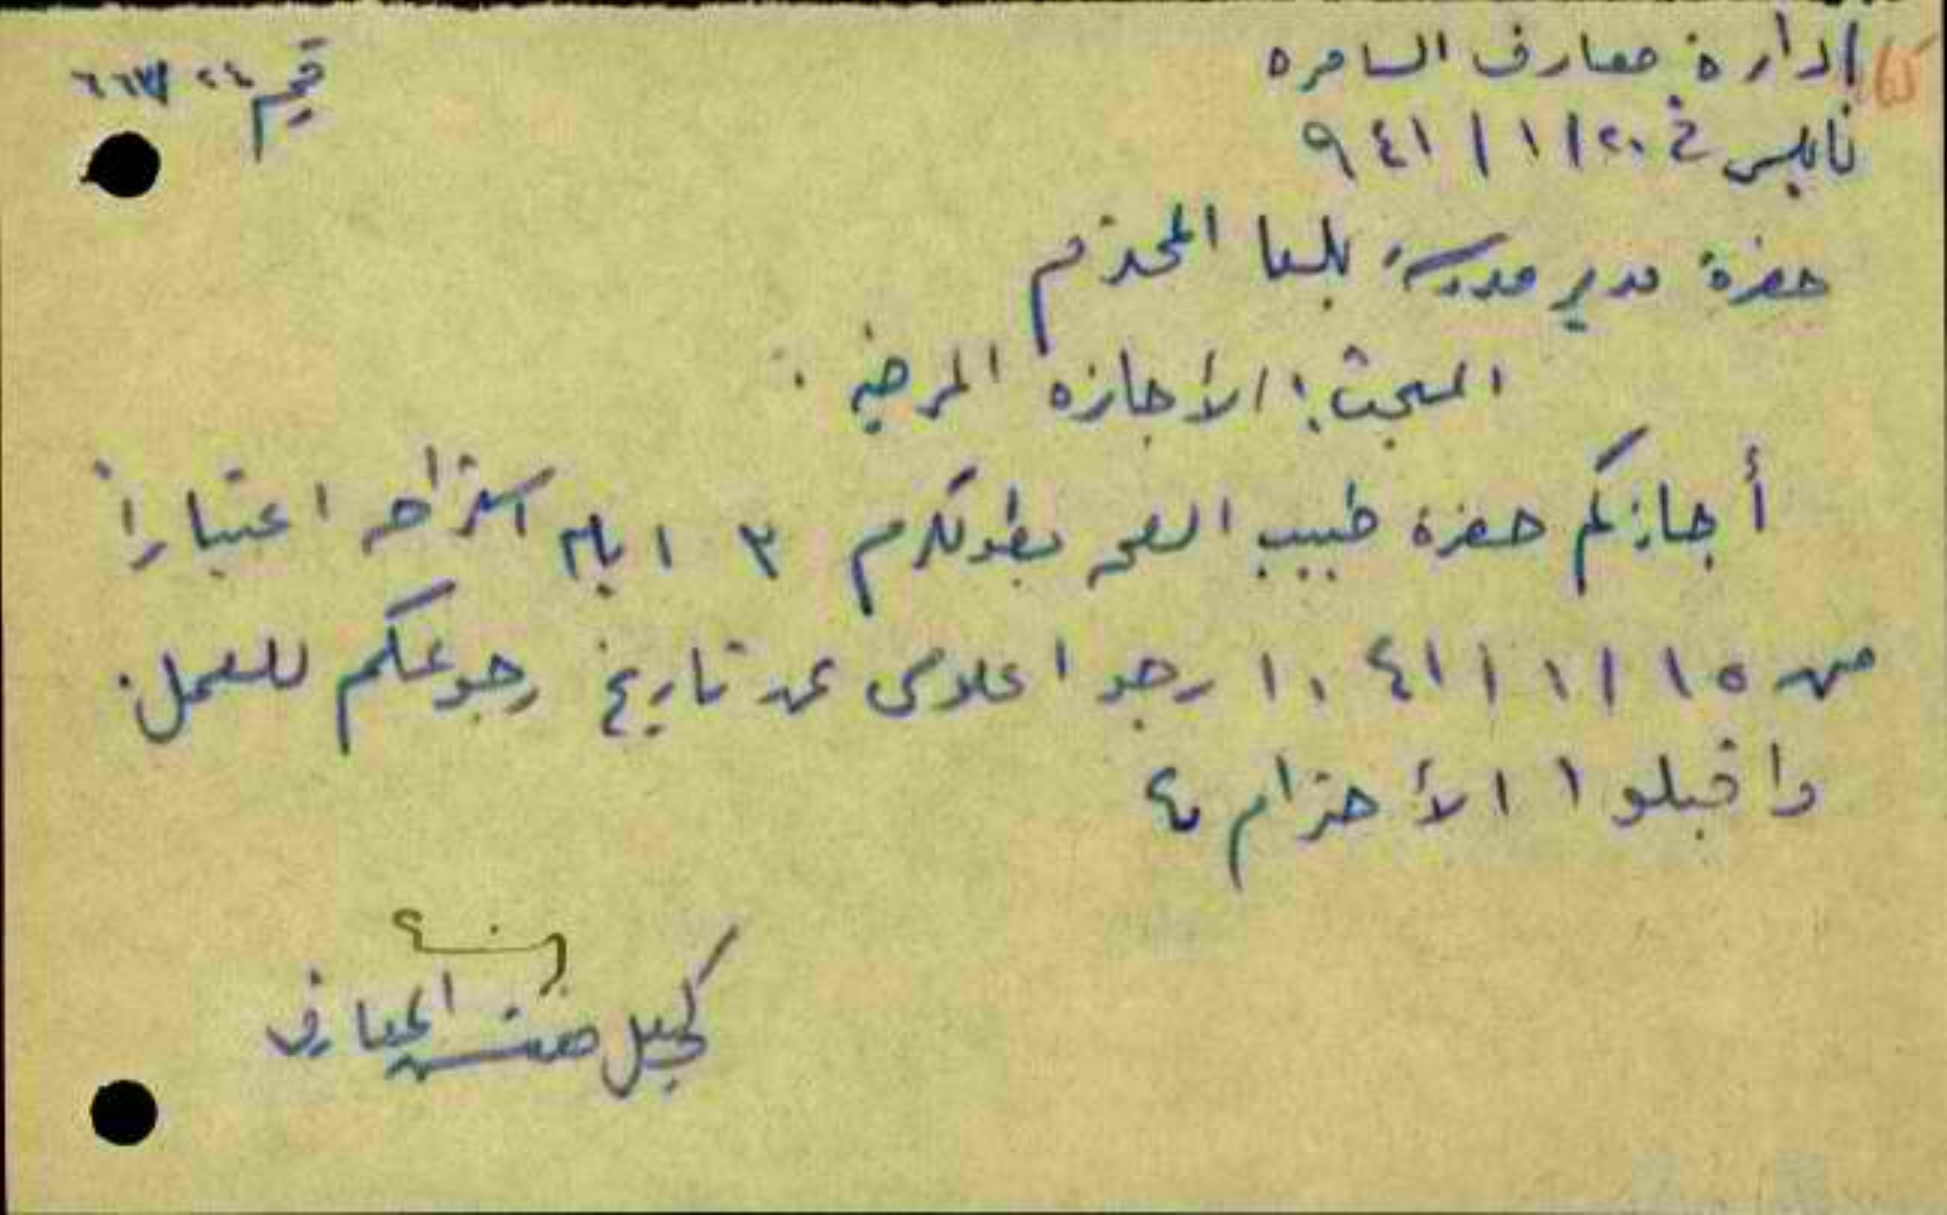 إدارة معارف السامره
نابلس في ٢٠ / ١ / ٩٤١
حضرة مدير مدرسة بلعا المحترم
المبحث: الأجازه المرضيه .
أجازكم حضرة طبيب الصحه بطولكرم ٣ ايام استراحه اعتباراً
من ١٥ / ١ / ٤١ . ارجو اعلامى عن تاريخ رجوعكم للعمل .
واقبلوا الأحترام
مفتش المعارف